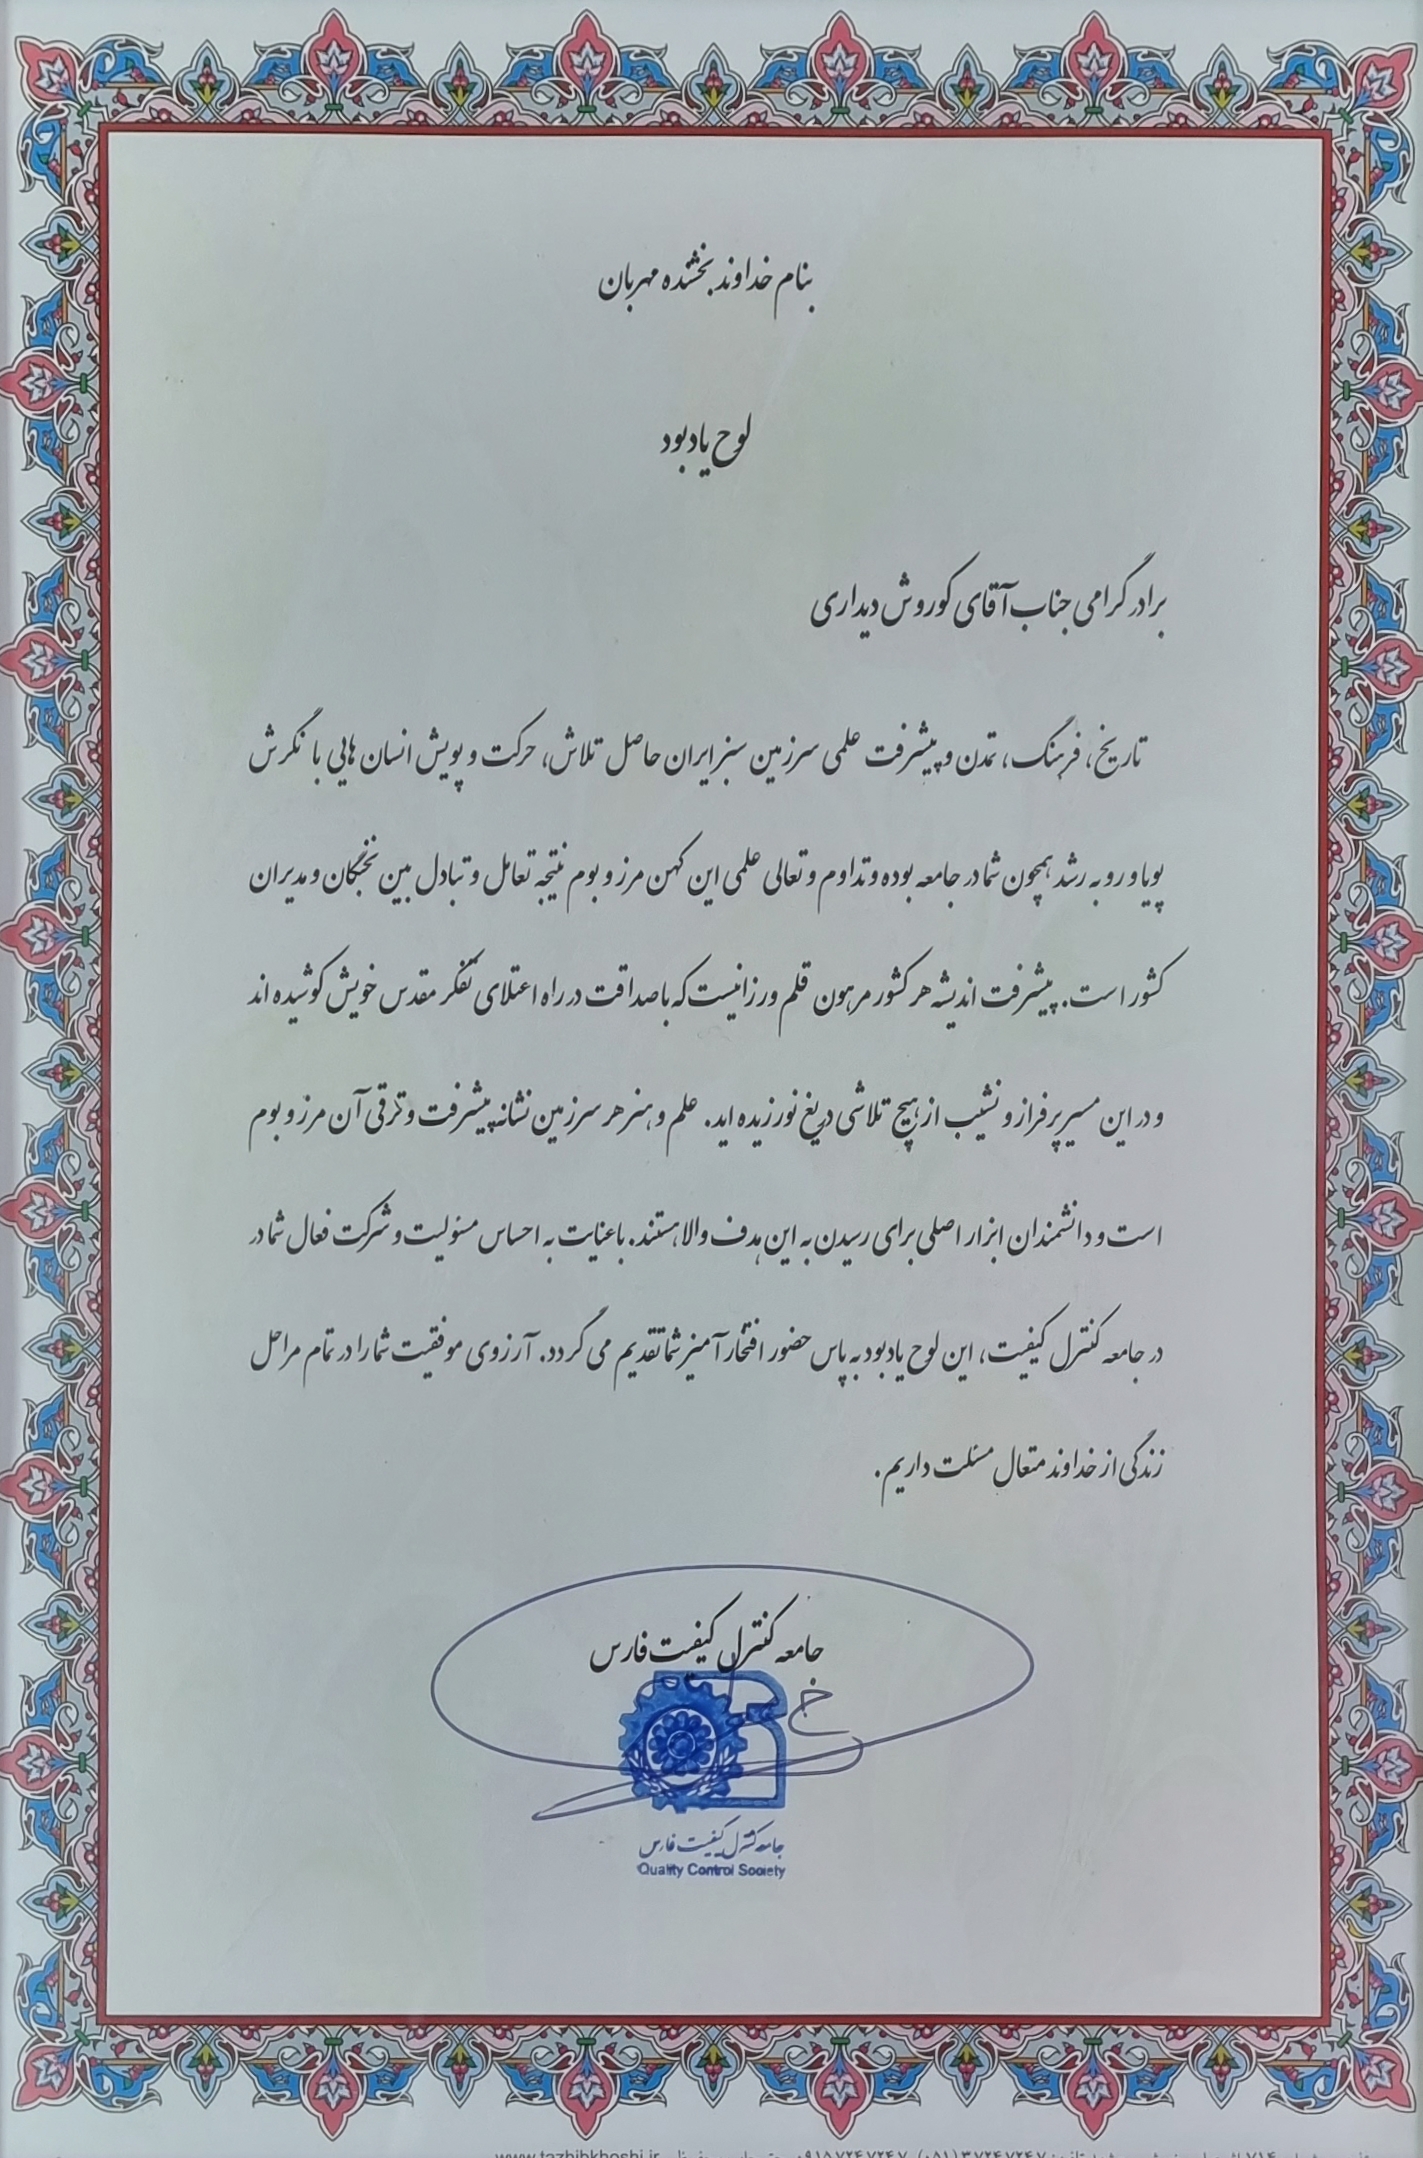 بنام خداوند بخشنده مهربان
لوح یادبود
برادر گرامی جناب آقای کوروش دیداری
تاریخ، فرهنگ، تمدن و پیشرفت علمی سرزمین سبز ایران حاصل تلاش، حرکت و پویش انسان هایی با نگرش
پویا و رو به رشد همچون شما در جامعه بوده و تداوم و تعالی علمی این کهن مرز و بوم نتیجه تعامل و تبادل بین نخبگان و مدیران
کشور است. پیشرفت اندیشه هر کشور مرهون قلم ورزانیست که با صداقت در راه اعتلای تفکر مقدس خویش کوشیده اند
و در این مسیر پر فراز و نشیب از هیچ تلاشی دریغ نورزیده اید. علم و هنر هر سرزمین نشانه پیشرفت و ترقی آن مرز و بوم
است و دانشمندان ابزار اصلی برای رسیدن به این هدف والا هستند. با عنایت به احساس مسئولیت و شرکت فعال شما در
در جامعه کنترل کیفیت، این لوح یادبود به پاس حضور افتخار آمیز شما تقدیم می گردد. آرزوی موفقیت شما را در تمام مراحل
زندگی از خداوند متعال مسئلت داریم.
جامعه کنترل کیفیت فارس
جامعه کنترل کیفیت فارس
Quality Control Society
www.tazhibkhoshi.ir